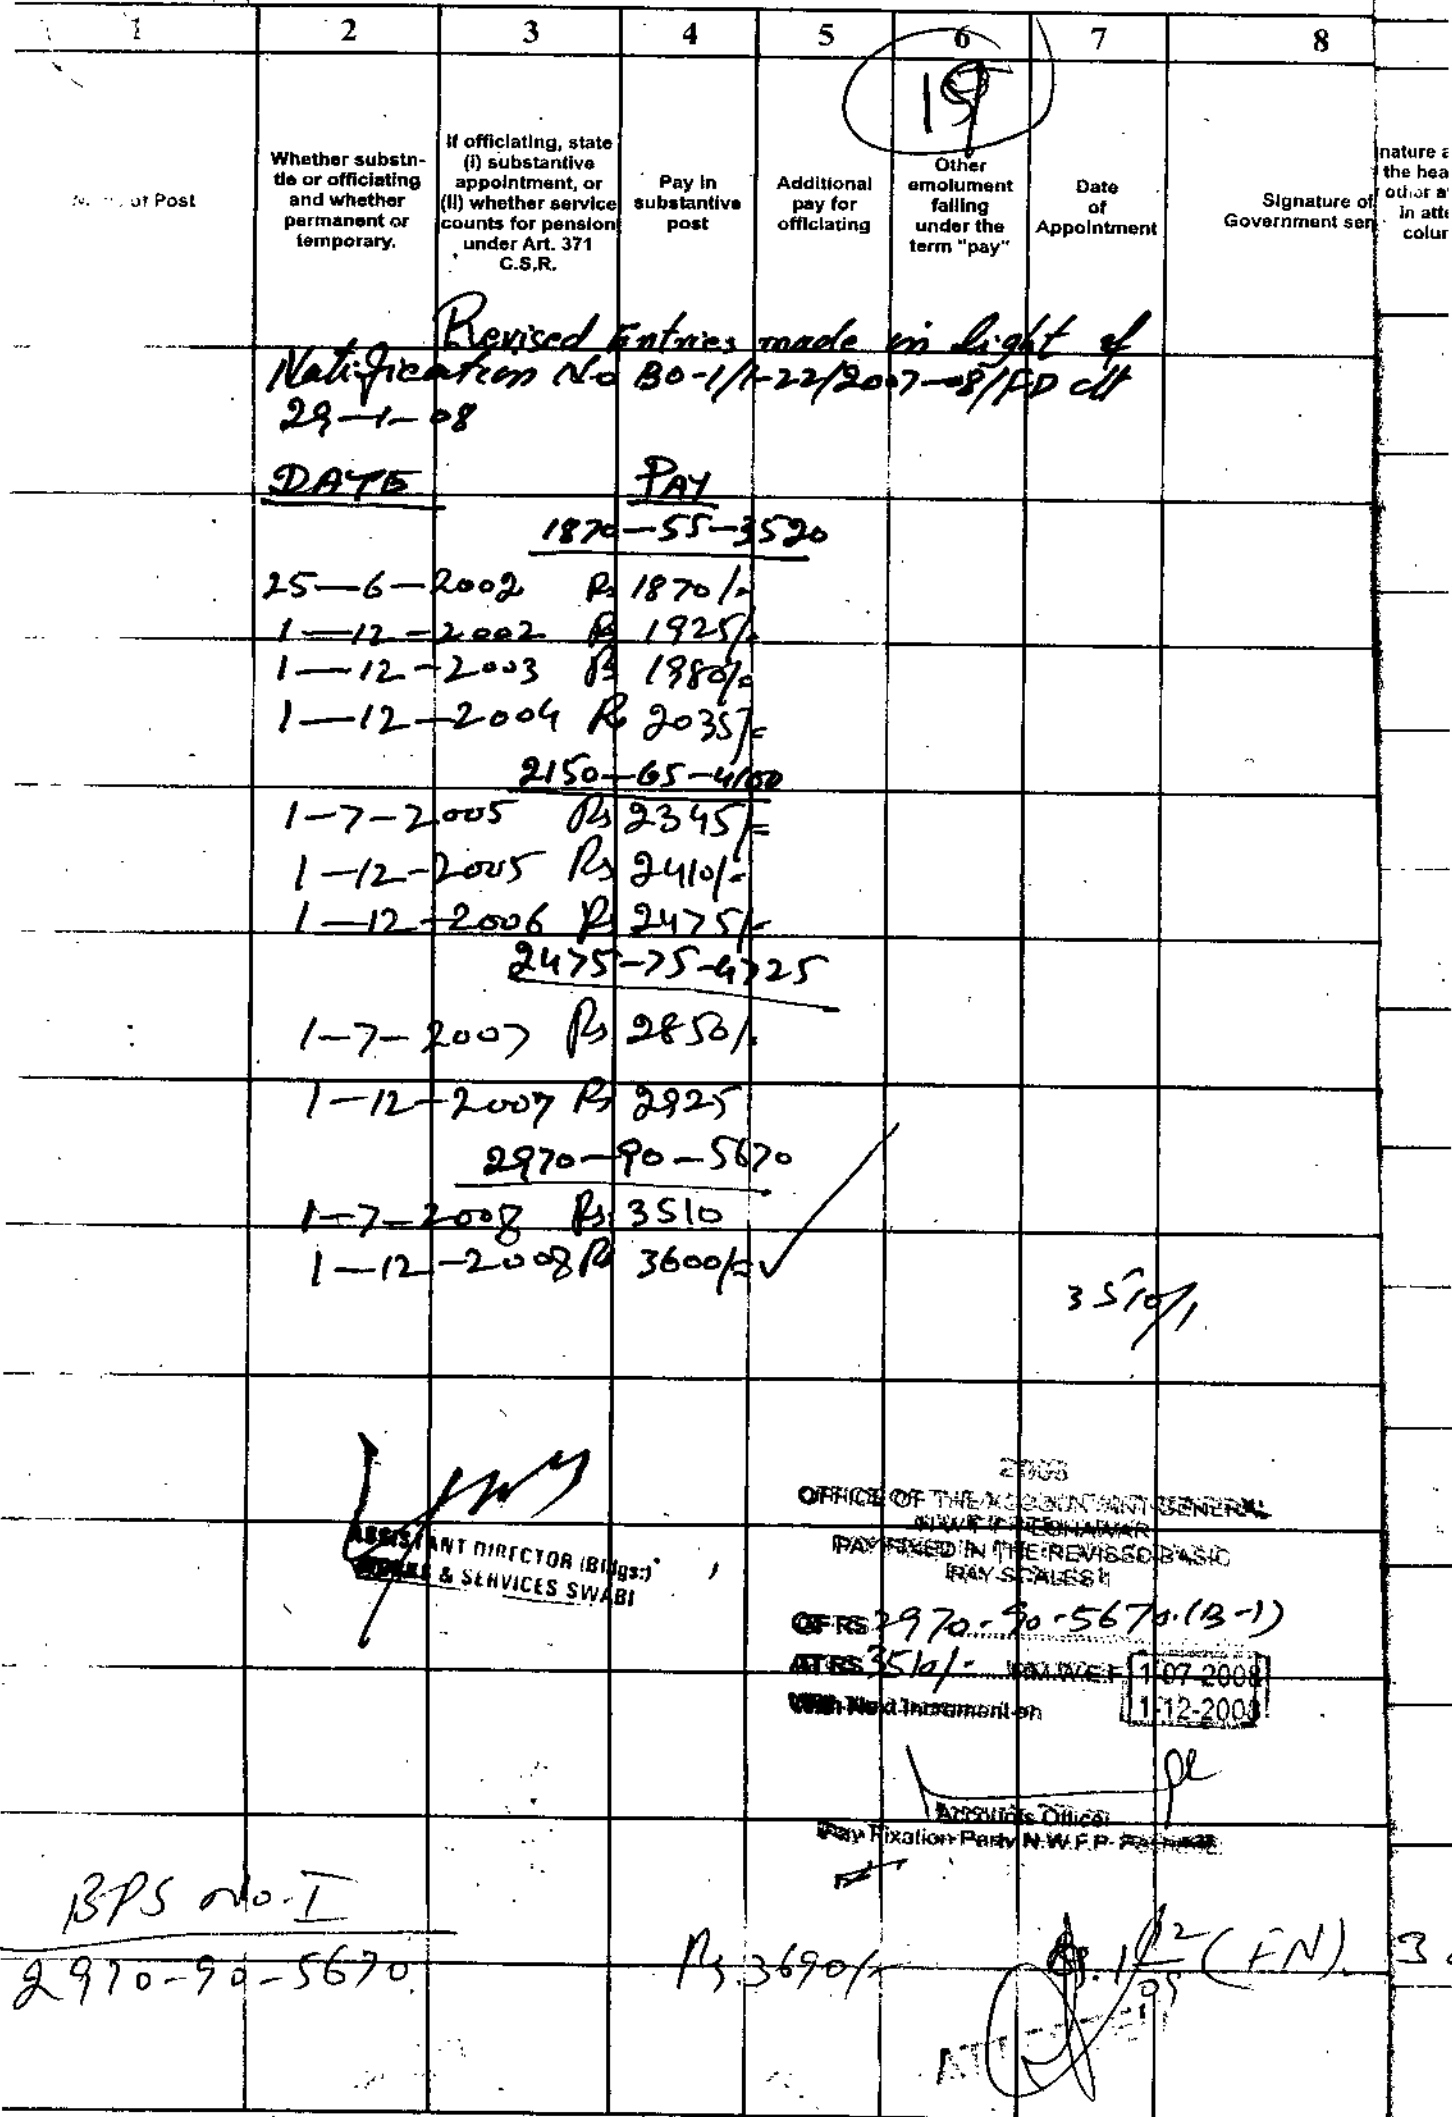 1 2 3 4 5 6 7 8
19
of Post
Whether substn-
tie or officiating
and whether
permanent or
temporary.
If officiating, state
(i) substantive
appointment, or
(ii) whether service
counts for pension
under Art. 371
C.S.R.
Pay in
substantive
post
Additional
pay for
officiating
Other
emolument
falling
under the
term "pay"
Date
of
Appointment
Signature of
Government ser
nature a
the hea
other a
in atte
colur
Revised Entries made in light of
Notification No BO-1/1-22/2007-08/FD dt
29-1-08
DATE PAY
1870-55-3520
25-6-2002 Rs 1870/-
1-12-2002 Rs 1925/-
1-12-2003 Rs 1980/-
1-12-2004 Rs 2035/=
2150-65-4100
1-7-2005 Rs 2345/=
1-12-2005 Rs 2410/-
1-12-2006 Rs 2475/-
2475-75-4725
1-7-2007 Rs 2850/-
1-12-2007 Rs 2925
2970-90-5670
1-7-2008 Rs 3510
1-12-2008 Rs 3600/=
3510/
ASSISTANT DIRECTOR (Bldgs:)
WORKS & SERVICES SWABI
2008
OFFICE OF THE ACCOUNTANT GENERAL
N.W.F.P PESHAWAR
PAY FIXED IN THE REVISED BASIC
PAY SCALES
OF RS 2970-90-5670.(B-1)
AT RS 3510/- P.M.W.E.F 1-07-2008
With Next Increment on 1-12-2008
Accounts Officer
Pay Fixation Party N.W.F.P
BPS No. I
2970-90-5670 Rs 3690/- (FN). 3